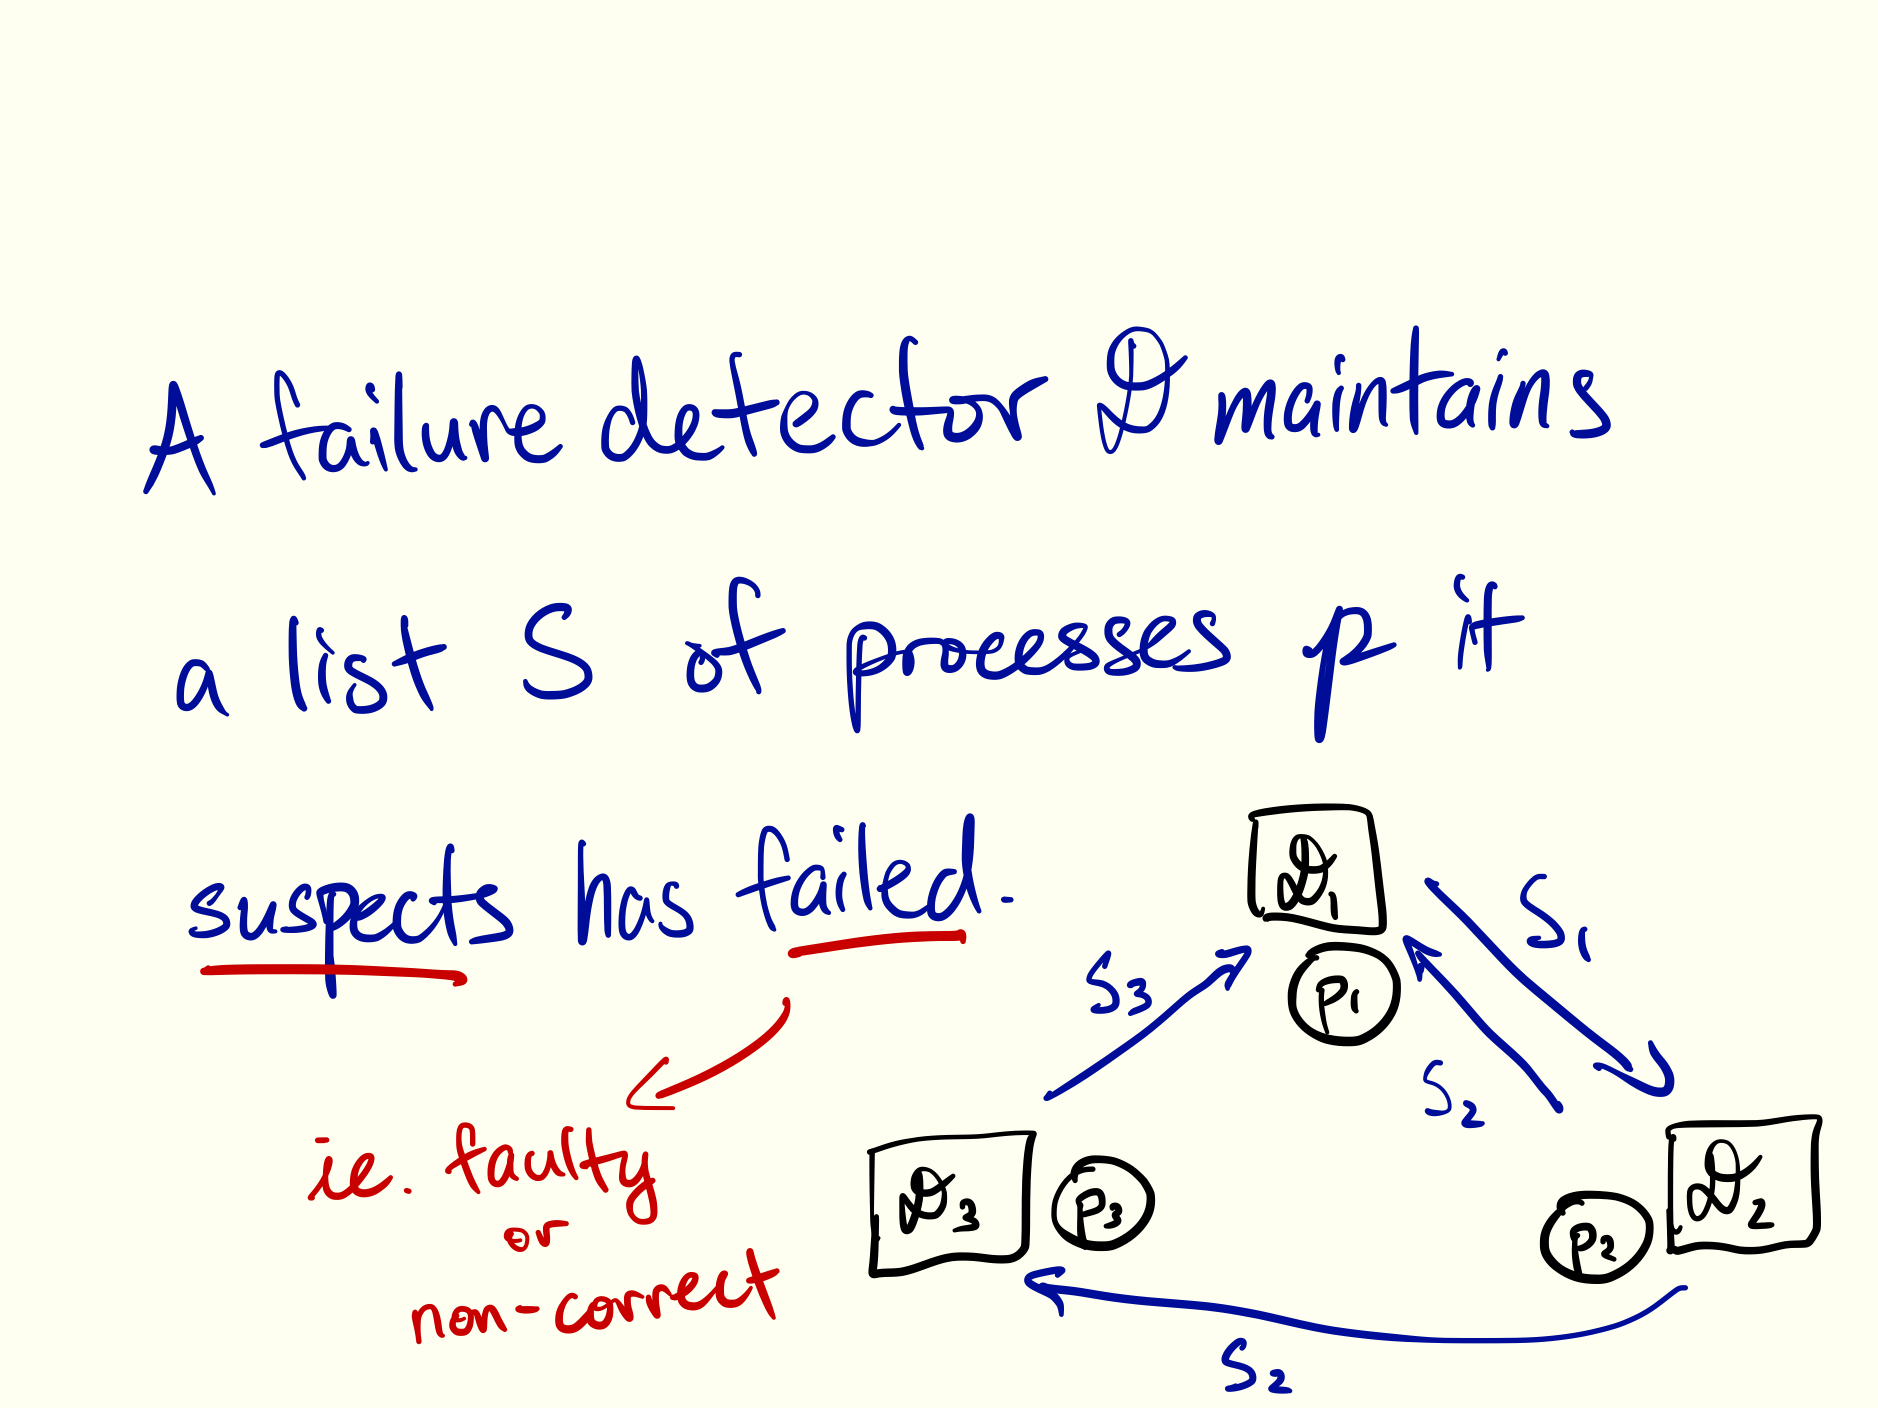 A failure detector 𝒟 maintains
a list S of processes p it
suspects has failed.
i.e. faulty
or
non-correct
𝒟₁
p₁
S₁
S₃
S₂
𝒟₃
p₃
p₂
𝒟₂
S₂